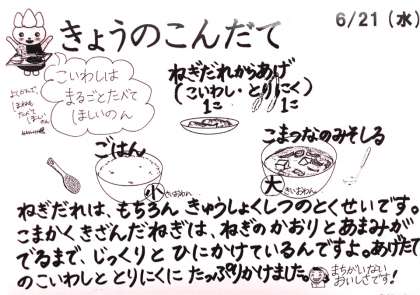 6/21（水）
きょうのこんだて
こいわしは
まるごとたべて
ほしいのん
よくかんで、
ねぎだれからあげ
（こいわし・とりにく）
1こ 1こ
ごはん
小 きいおわん
こまつなのみそしる
大 きいおわん
ねぎだれは、もちろん きゅうしょくしつのとくせいです。
こまかく きざんだねぎは、ねぎの かおりと あまみが
でるまで、じっくりと ひにかけているんですよ。あげたて
のこいわしと とりにくに たっぷりかけました。
まちがいない
おいしさです！